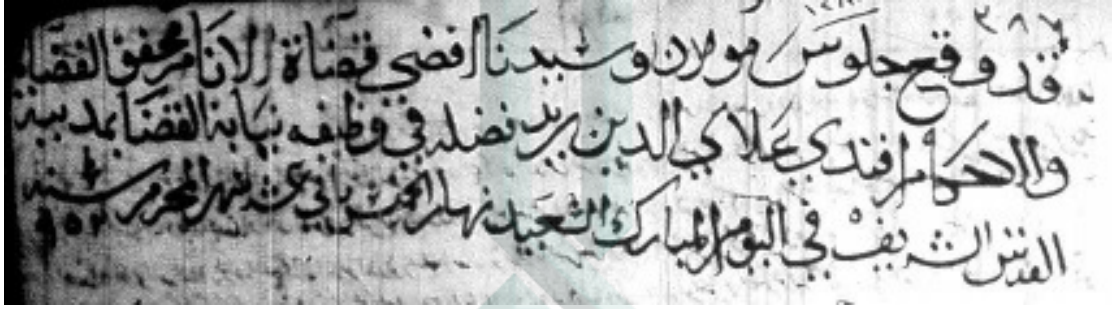 قد وقع جلوس مولانا وسيدنا اقضى قضاة الانام محقق القضايا
والاحكام افندي علاي الدين يزيد فضله في وظيفه نيابة القضا بمدينة
القدس الشريف في اليوم المبارك السعيد نهار الخميس ثاني عشر شهر المحرم سنه
٩٥٢